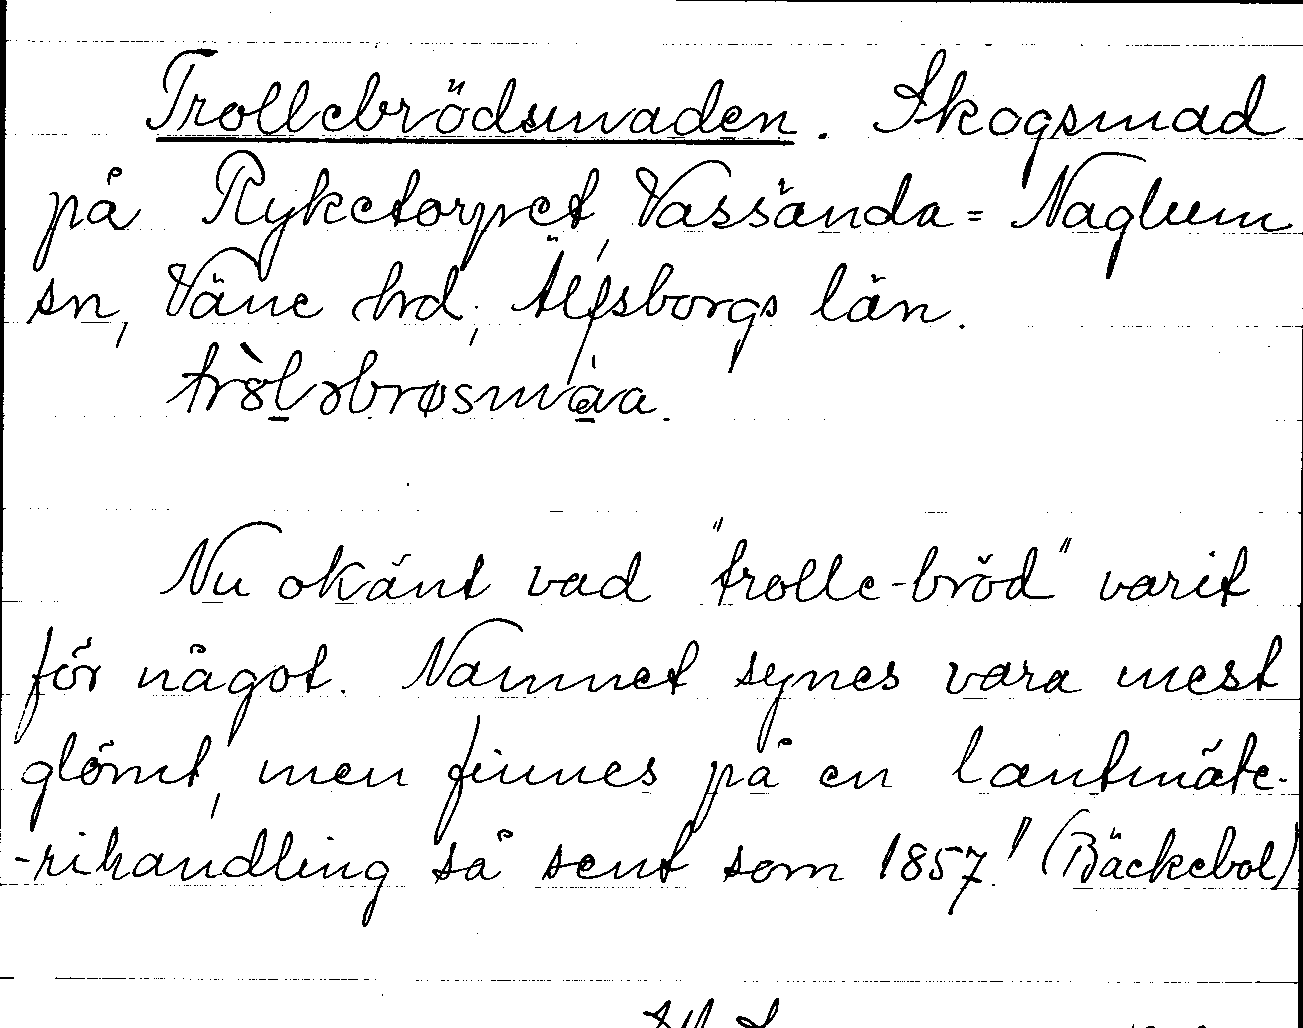 Trollebrödsmaden. Skogsmad
på Ryketorpet, Vassända=Naglum
sn, Väne hrd, Älfsborgs län.
trò̤l̠əbrøsma̠a.
Nu okänt vad "trolle-bröd" varit
för något. Namnet synes vara mest
glömt, men finnes på en lantmäte-
-rihandling så sent som 1857! (Bäckebol)